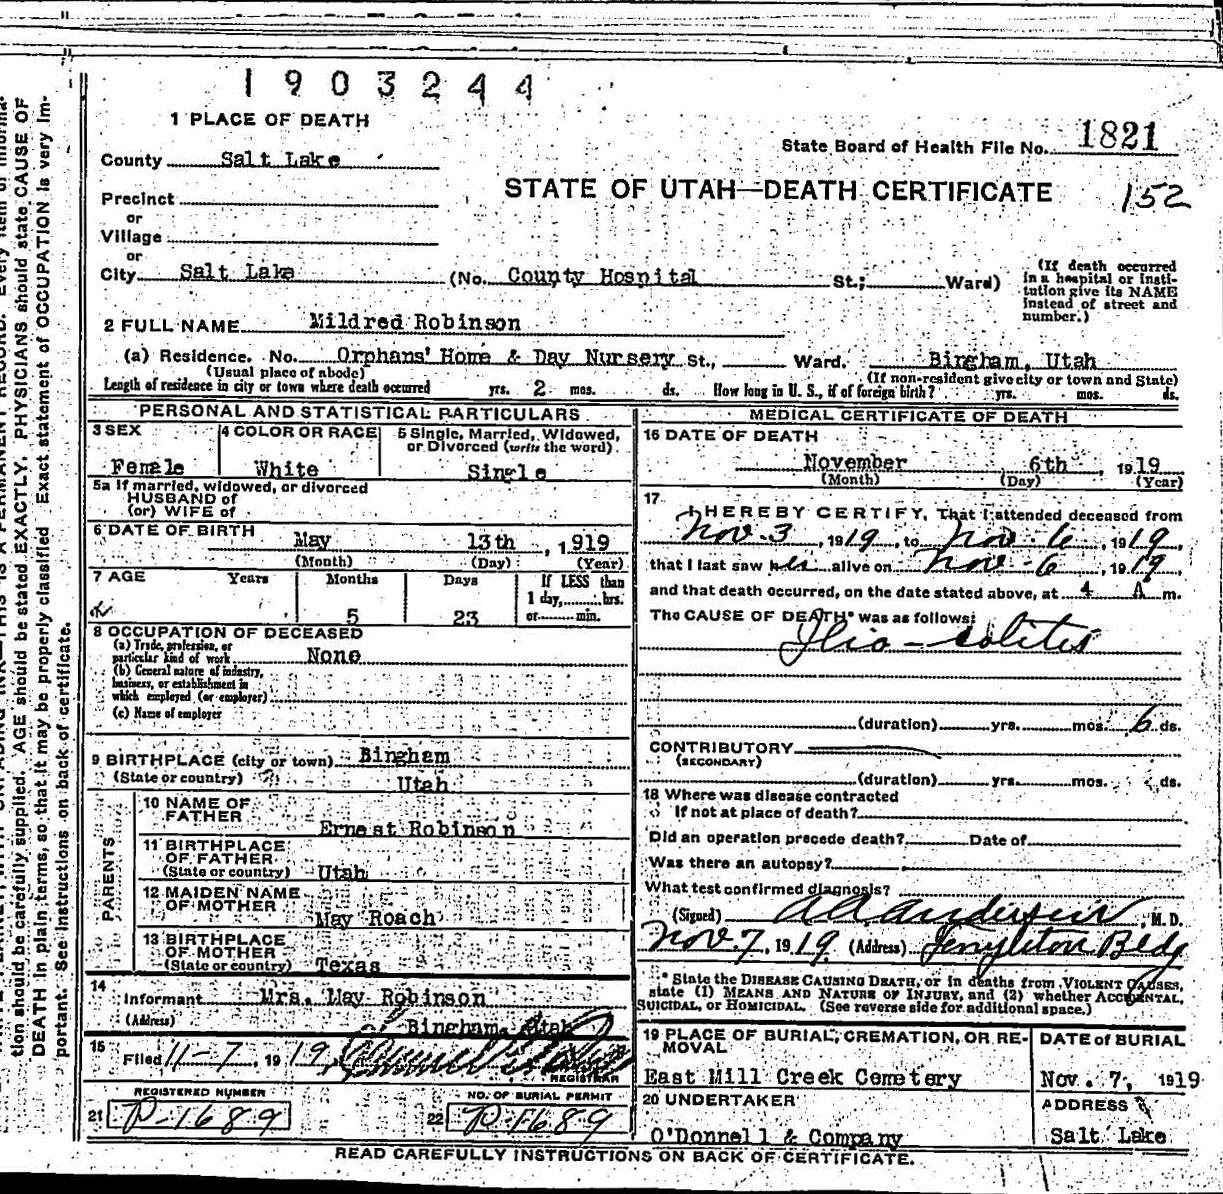 1903244
1 PLACE OF DEATH
State Board of Health File No. 1821
County Salt Lake
STATE OF UTAH—DEATH CERTIFICATE 152
Precinct
or
Village
or
City Salt Lake (No. County Hospital St.; Ward)
(If death occurred in a hospital or insti-
tution give its NAME
instead of street and
number.)
2 FULL NAME Mildred Robinson
(a) Residence. No. Orphans' Home & Day Nursery St., Ward. Bingham, Utah
(Usual place of abode) (If non-resident give city or town and State)
Length of residence in city or town where death occurred yrs. 2 mos. ds. How long in U. S., if of foreign birth? yrs. mos. ds.
PERSONAL AND STATISTICAL PARTICULARS
3 SEX 4 COLOR OR RACE 5 Single, Married, Widowed,
or Divorced (write the word)
Female White Single
5a If married, widowed, or divorced
HUSBAND of
(or) WIFE of
6 DATE OF BIRTH May 13th, 1919
(Month) (Day) (Year)
7 AGE Years Months Days If LESS than
1 day, hrs.
5 23 or min.
8 OCCUPATION OF DECEASED
(a) Trade, profession, or
particular kind of work None
(b) General nature of industry,
business, or establishment in
which employed (or employer)
(c) Name of employer
9 BIRTHPLACE (city or town) Bingham
(State or country) Utah
PARENTS
10 NAME OF
FATHER Ernest Robinson
11 BIRTHPLACE
OF FATHER
(State or country) Utah
12 MAIDEN NAME
OF MOTHER May Roach
13 BIRTHPLACE
OF MOTHER
(State or country) Texas
14
Informant Mrs. May Robinson
(Address) Bingham, Utah
15
Filed 11-7, 1919,
REGISTRAR
REGISTERED NUMBER NO. OF BURIAL PERMIT
21 P-1689 22 P-1689
MEDICAL CERTIFICATE OF DEATH
16 DATE OF DEATH
November 6th, 1919
(Month) (Day) (Year)
17
I HEREBY CERTIFY, That I attended deceased from
Nov. 3, 1919, to Nov. 6, 1919,
that I last saw her alive on Nov - 6, 1919,
and that death occurred, on the date stated above, at 4 A m.
The CAUSE OF DEATH* was as follows:
Ilio-colites
(duration) yrs. mos. 6 ds.
CONTRIBUTORY
(SECONDARY)
(duration) yrs. mos. ds.
18 Where was disease contracted
If not at place of death?
Did an operation precede death? Date of
Was there an autopsy?
What test confirmed diagnosis?
(Signed) Anderson, M. D.
Nov. 7, 1919 (Address) Templeton Bldg
* State the DISEASE CAUSING DEATH, or in deaths from VIOLENT CAUSES,
state (1) MEANS AND NATURE OF INJURY, and (2) whether ACCIDENTAL,
SUICIDAL, OR HOMICIDAL. (See reverse side for additional space.)
19 PLACE OF BURIAL, CREMATION, OR RE-
MOVAL
East Mill Creek Cemetery
DATE of BURIAL
Nov. 7, 1919
20 UNDERTAKER
O'Donnell & Company
ADDRESS
Salt Lake
READ CAREFULLY INSTRUCTIONS ON BACK OF CERTIFICATE.
tion should be carefully supplied. AGE should be stated EXACTLY. PHYSICIANS should state CAUSE OF
DEATH in plain terms, so that it may be properly classified. Exact statement of OCCUPATION is very im-
portant. See instructions on back of certificate.